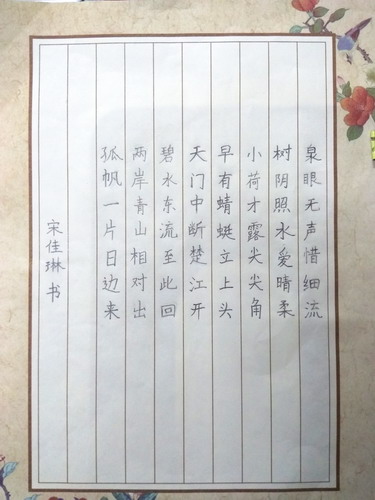 泉眼无声惜细流
树阴照水爱晴柔
小荷才露尖尖角
早有蜻蜓立上头
天门中断楚江开
碧水东流至此回
两岸青山相对出
孤帆一片日边来
宋佳琳书